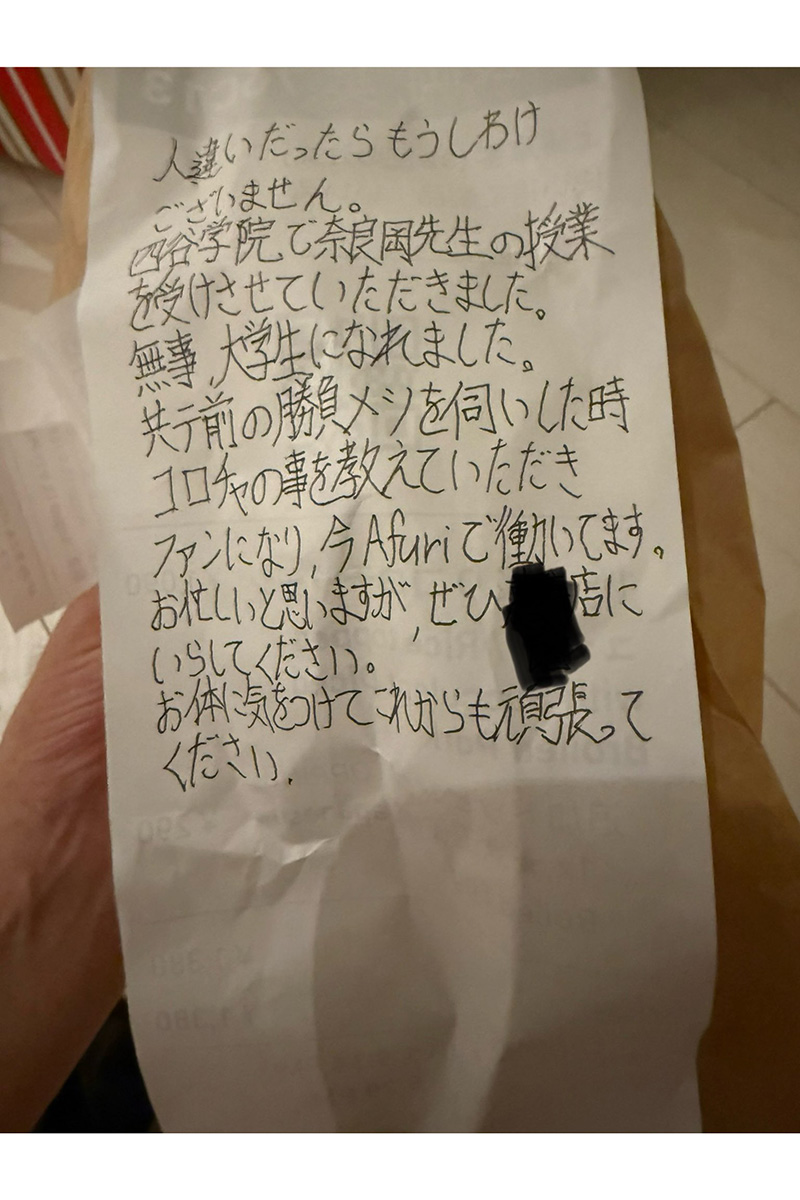 人違いだったらもうしわけ
ございません。
四谷学院で奈良岡先生の授業
を受けさせていただきました。
無事、大学生になれました。
共テ前の勝負メシを伺いした時
コロチャの事を教えていただき
ファンになり、今Afuriで働いてます。
お忙しいと思いますが、ぜひ 店に
いらしてください。
お体に気をつけてこれからも頑張って
ください.